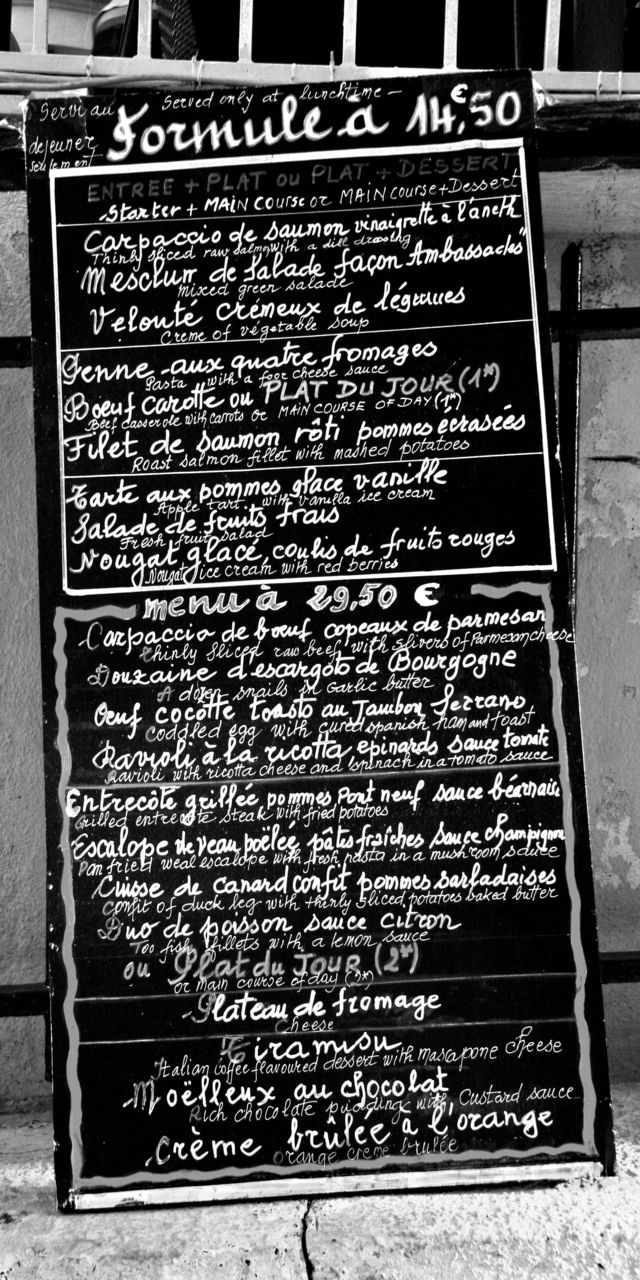 Servi au
dejeuner
seulement
Served only at lunchtime -
Formule à 14,50 €
ENTREE + PLAT ou PLAT + DESSERT
Starter + MAIN COURSE or MAIN COURSE + Dessert
Carpaccio de saumon vinaigrette à l'aneth
Thinly sliced raw salmon with a dill dressing
Mesclun de Salade façon Ambassades"
mixed green salade
Velouté Crémeux de légumes
Creme of vegetable soup
Penne aux quatre fromages
Pasta with a foor cheese sauce
Boeuf Carotte ou PLAT DU JOUR (1*)
Beef casserole with carrots or MAIN COURSE OF DAY (1*)
Filet de saumon rôti pommes écrasées
Roast salmon fillet with mashed potatoes
Tarte aux pommes glace vanille
Apple tart with vanilla ice cream
Salade de fruits frais
Fresh fruit salad
Nougat glacé, coulis de fruits rouges
Nougat ice cream with red berries
menu à 29,50 €
Carpaccio de boeuf copeaux de parmesan
thinly sliced raw beef with slivers of Parmesan cheese
Douzaine d'escargots de Bourgogne
A dozen snails in Garlic butter
Oeuf cocotte toasts au Jambon Serrano
Coddled egg with cured spanish ham and toast
Ravioli à la ricotta epinards sauce tomate
Ravioli with ricotta cheese and spinach in a tomato sauce
Entrecôte grillée pommes Pont neuf sauce béarnaise
Grilled entrecote steak with fried potatoes
Escalope de veau poëlée pâtes fraîches sauce champignon
Pan fried weal escalope with fresh pasta in a mushroom sauce
Cuisse de canard confit pommes sarladaises
Confit of duck leg with thinly sliced potatoes baked butter
Duo de poisson sauce citron
Too fish fillets with a lemon sauce
ou Plat du JOUR (2*)
or main course of day (2*)
Plateau de fromage
Cheese
Tiramisu
Italian coffee flavoured dessert with mascapone cheese
Moëlleux au chocolat
Rich chocolate pudding with Custard sauce
Crème brûlée à l'orange
Orange creme brulée